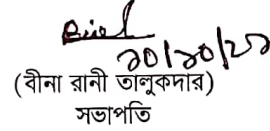 ২০/১০/২১
(বীনা রানী তালুকদার)
সভাপতি